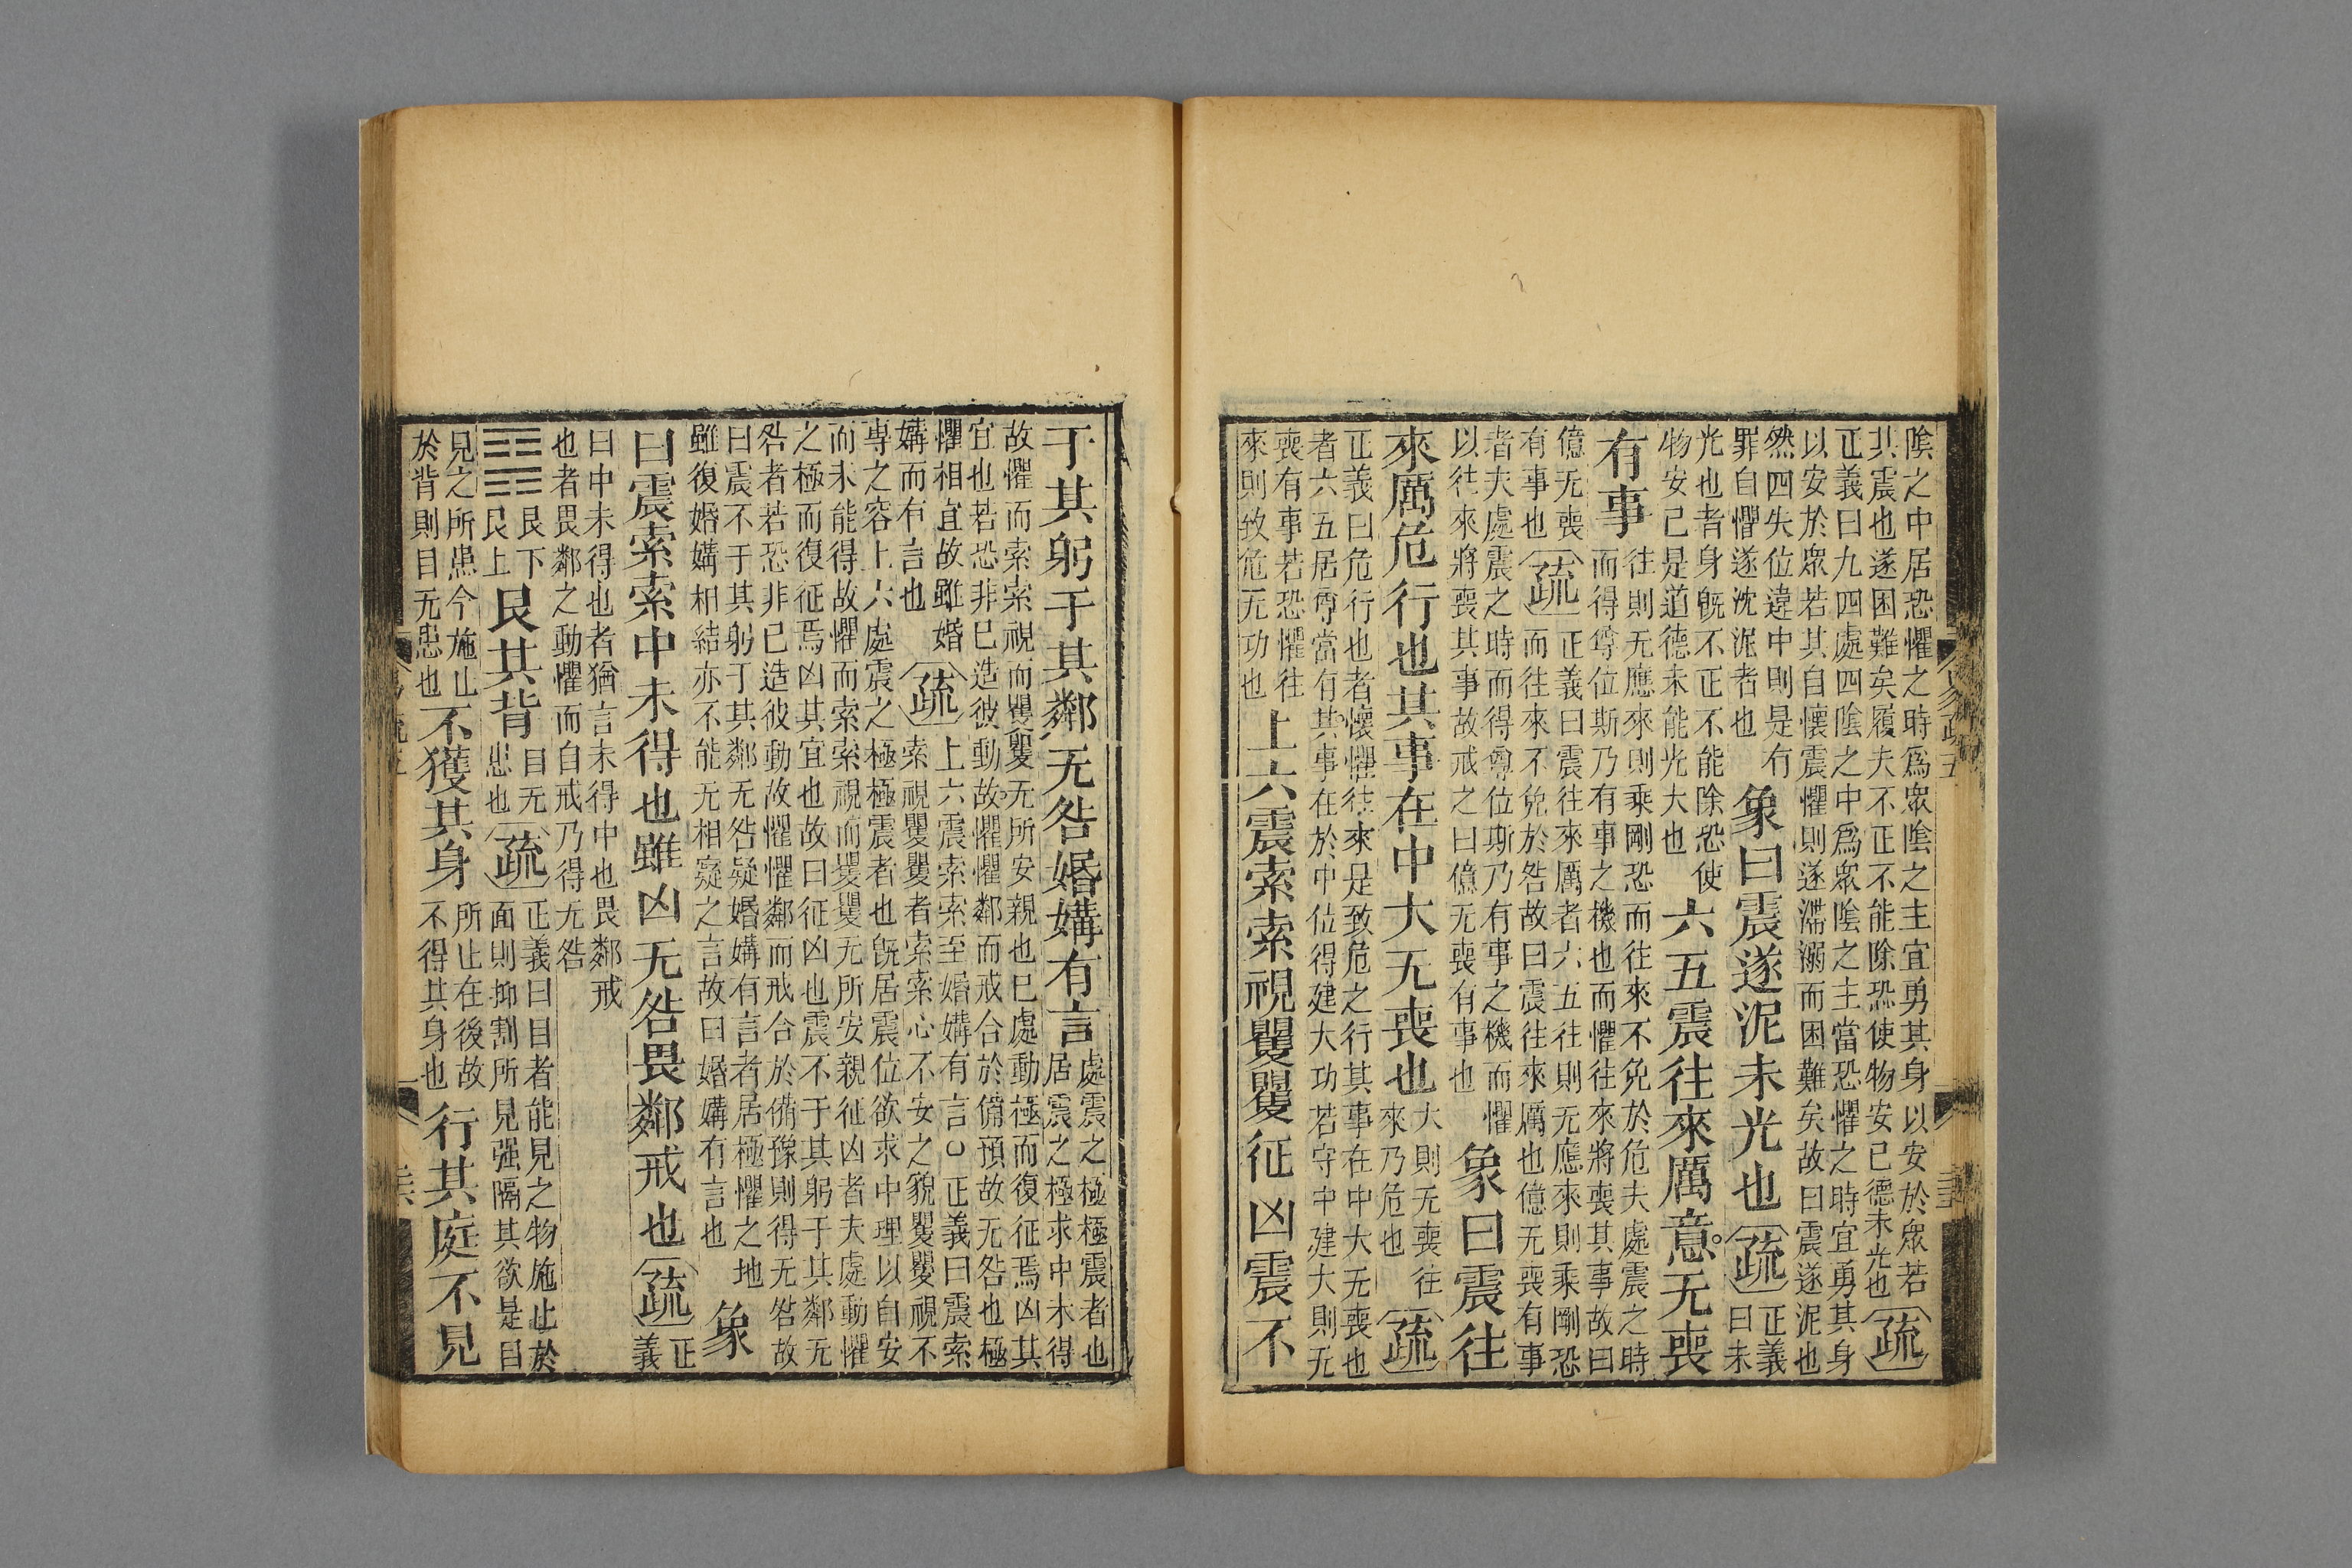 陰之中居恐懼之時爲衆陰之主宜勇其身以安於衆若
其震也遂困難矣履夫不正不能除恐使物安己德未光也疏
正義曰九四處四陰之中爲衆陰之主當恐懼之時宜勇其身
以安於衆若其自懷震懼則遂滯溺而困難矣故曰震遂泥也
然四失位違中則是有
罪自懼遂沈泥者也
象曰震遂泥未光也疏
正義
曰未
光也者身旣不正不能除恐使
物安己是道德未能光大也
六五震往來厲意无喪
有事
往則无應來則乘剛恐而往來不免於危夫處震之時
而得尊位斯乃有事之機也而懼往來將喪其事故曰
億无喪
有事也
疏
正義曰震往來厲者六五往則无應來則乘剛恐
而往來不免於咎故曰震往來厲也億无喪有事
者夫處震之時而得尊位斯乃有事之機而懼
以往來將喪其事故戒之曰億无喪有事也
象曰震往
來厲危行也其事在中大无喪也
大則无喪往
來乃危也
疏
正義曰危行也者懷懼往來是致危之行其事在中大无喪也
者六五居尊當有其事在於中位得建大功若守中建大則无
喪有事若恐懼往
來則致危无功也
上六震索索視矍矍征凶震不
于其躬于其鄰无咎婚媾有言
處震之極極震者也
居震之極求中未得
故懼而索索視而矍矍无所安親也已處動極而復征焉凶其
宜也若恐非己造彼動故懼懼鄰而戒合於備預故无咎也極
懼相宜故雖婚
媾而有言也
疏
上六震索索至婚媾有言○正義曰震索
索視矍矍者索索心不安之貌矍矍視不
專之容上六處震之極極震者也旣居震位欲求中理以自安
而未能得故懼而索索視而矍矍无所安親征凶者夫處動懼
之極而復征焉凶其宜也故曰征凶也震不于其躬于其鄰无
咎者若恐非己造彼動故懼懼鄰而戒合於備豫則得无咎故
曰震不于其躬于其鄰无咎疑婚媾有言者居極懼之地
雖復婚媾相結亦不能无相疑之言故曰婚媾有言也
象
曰震索索中未得也雖凶无咎畏鄰戒也疏
正
義
曰中未得也者猶言未得中也畏鄰戒
也者畏鄰之動懼而自戒乃得无咎
艮下
艮上
艮其背
目无
患也
疏
正義曰目者能見之物施止於
面則抑割所見强隔其欲是目
見之所患今施止
於背則目无患也
不獲其身
所止在後故
不得其身也
行其庭不見